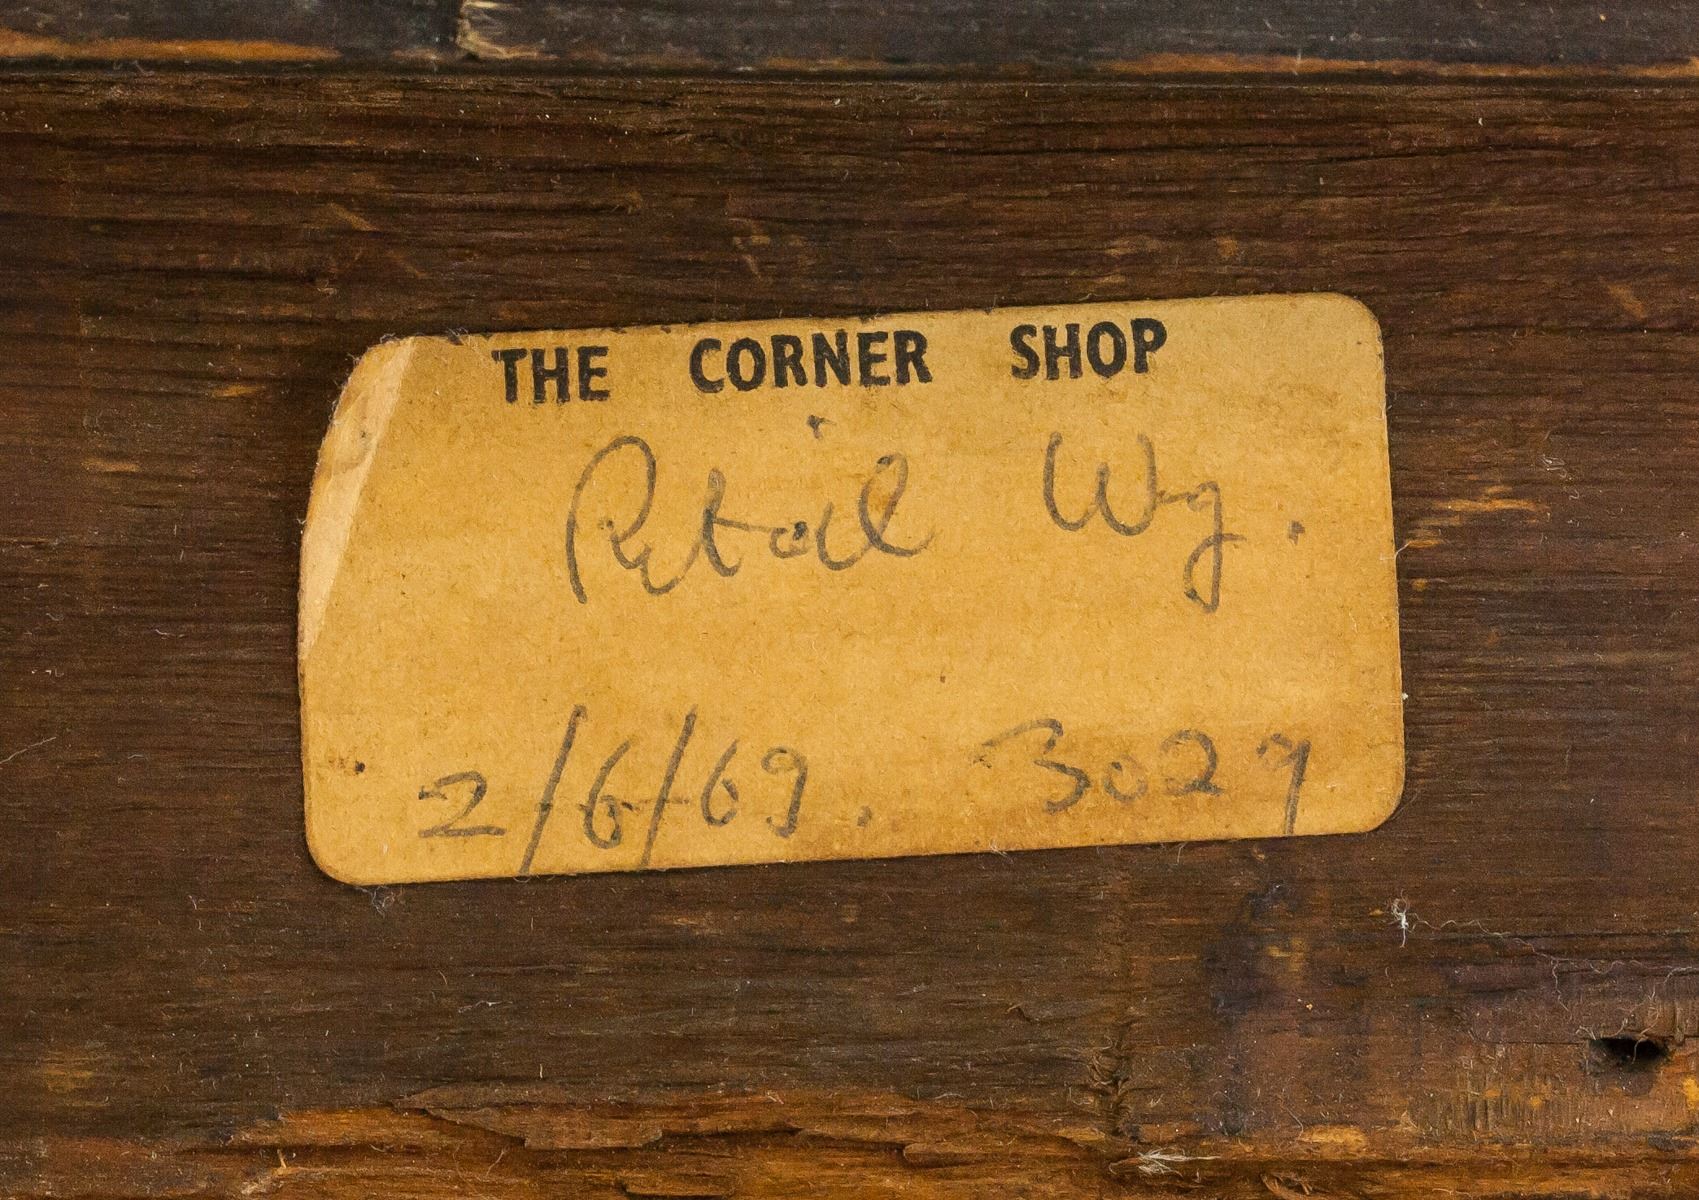 THE CORNER SHOP
Retail Wg.
2/6/69. 3029